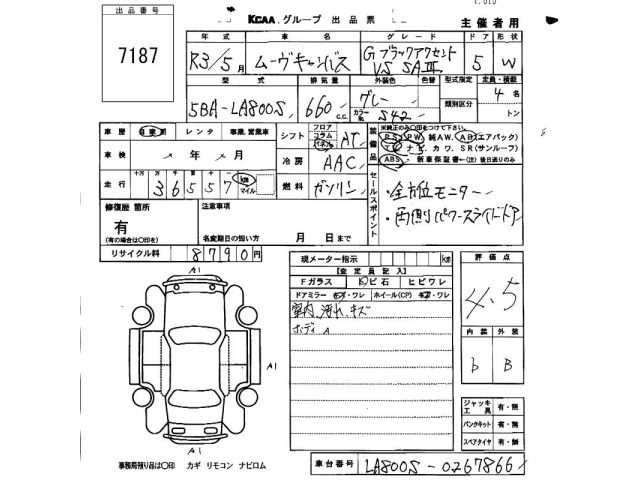 出品番号
7187
KCAA.グループ 出品票
主催者用
年式 車名 グレード ドア 形状
R3/5月 ムーヴキャンバス G ブラックアクセント VS SAⅢ 5 W
型式 排気量 外装色 色替 型式指定 定員・積載
5BA-LA800S 660 c.c. グレー カラーNo. S42 類別区分 4名 トン
車歴 自家用 レンタ 事業、営業車
シフト フロア コラム インパネ AT
装備品 ※純正のみ○印をつけて下さい。
PS PW 純AW. AB(エアバック)
TV ナビ カワ. SR(サンルーフ)
ABS 新車保証書←(注)後日送りのみ
車検 年 月
冷房 AAC
走行 十万 万 千 百 十 36557 km マイル
燃料 ガソリン
セールスポイント
・全方位モニター
・両側パワースライドドア
修復歴 箇所
有
(有の場合は○印を)
注意事項
名変期日の短い方 月 日まで
リサイクル料 8790円
現メーター指示 km
評価点
4.5
【査定員記入】
Fガラス 飛ビ石 ヒビワレ
ドアミラー キズ・ワレ ホイール(CP) キズ・ワレ
室内 汚れ、キズ
ボディ A
内装 外装
b B
A1
A1
A1
ジャッキ工具 有・無
パンクキット 有・無
スペアタイヤ 有・無
事務局預り品は○印 カギ リモコン ナビロム
車台番号 LA800S-0267866